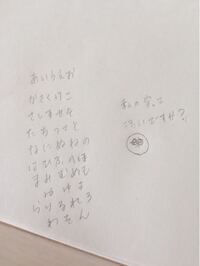 あいうえお
かきくけこ
さしすせそ
たちつてと
なにぬねの
はひふへほ
まみむめも
やゆよ
らりるれろ
わをん
私の字は
ですか?